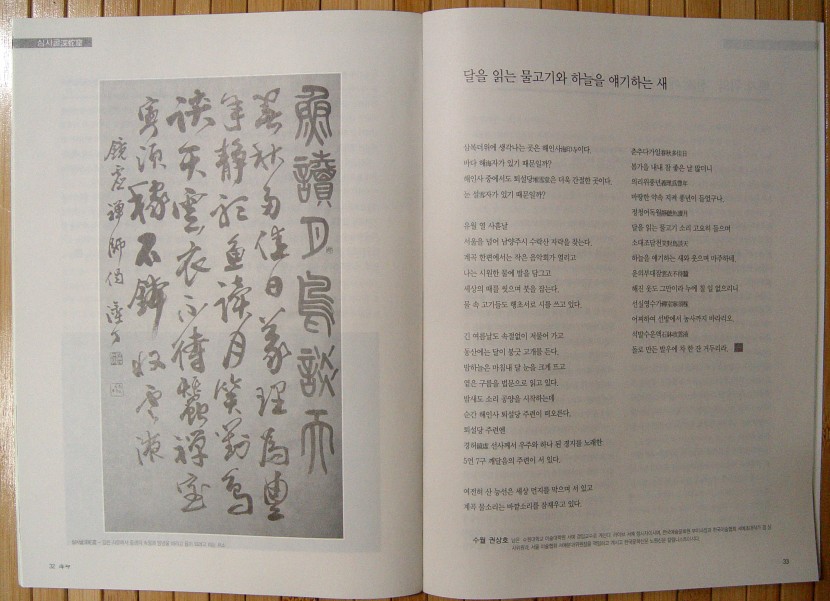 魚讀月鳥談天
春秋多佳日義理爲豊
年靜聽魚讀月笑對鳥
談天雲衣不待蠶禪室
寧須稼石鉢收雲液
鏡虛禪師偈
32
달을 읽는 물고기와 하늘을 얘기하는 새
삼복더위에 생각나는 곳은 해인사海印寺이다.
바다 해海자가 있기 때문일까?
해인사 중에서도 퇴설당堆雪堂은 더욱 간절한 곳이다.
눈 설雪자가 있기 때문일까?
유월 열 사흗날
서울을 넘어 남양주시 수락산 자락을 찾는다.
계곡 한편에서는 작은 음악회가 열리고
나는 시원한 물에 발을 담그고
세상의 때를 씻으며 붓을 잡는다.
물 속 고기들도 행초서로 시를 쓰고 있다.
긴 여름날도 속절없이 저물어 가고
동산에는 달이 불긋 고개를 든다.
밤하늘은 아침내 달 눈을 크게 뜨고
엷은 구름을 법문으로 읽고 있다.
밤새도 소리 공양을 시작하는데
순간 해인사 퇴설당 주련이 떠오른다.
퇴설당 주련엔
경허鏡虛 선사께서 우주와 하나 된 경지를 노래한
5언 7구 깨달음의 주련이 서 있다.
여전히 산 능선은 세상 번지를 막으며 서 있고
계곡 물소리는 바깥소리를 잠재우고 있다.
춘추다가일春秋多佳日
봄가을 내내 참 좋은 날 많더니
의리위풍년義理爲豊年
바람한 약속 지켜 풍년이 들었구나.
정청어독월靜聽魚讀月
달을 읽는 물고기 소리 고요히 들으며
소대조담천笑對鳥談天
하늘을 얘기하는 새와 웃으며 마주하네.
운의부대잠雲衣不待蠶
해진 옷도 그만이라 누에 칠 일 없으리니
선실영수가禪室寧須稼
어찌하여 선방에서 농사까지 바라리오.
석발수운액石鉢收雲液
돌로 만든 발우에 차 한 잔 거두리라.
수월 권상호
33